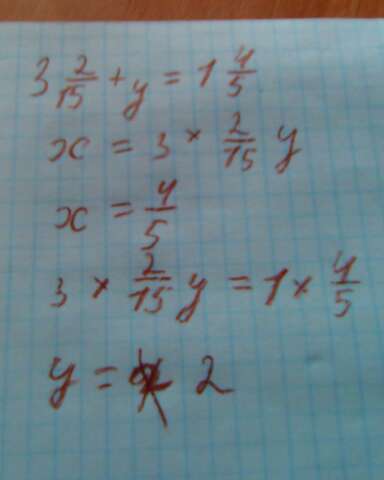 3 2/15 + y = 1 4/5
x = 3 × 2/15 y
x = 4/5
3 × 2/15 y = 1 × 4/5
y = 2